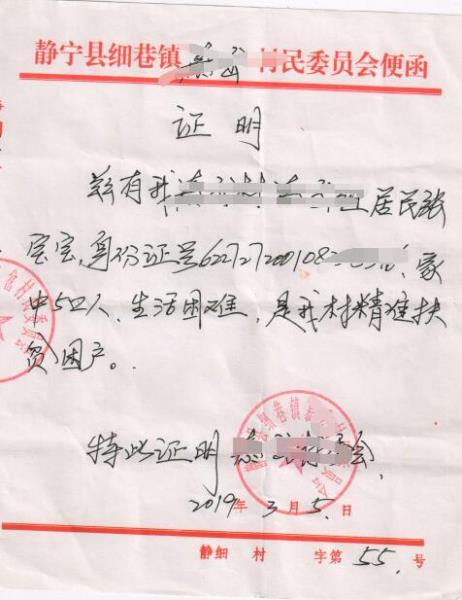 静宁县细巷镇 村民委员会便函
证明
兹有我 居民张
宝宝,身份证号622727200108 家
中5口人、生活困难,是我村精准扶
贫困户。
特此证明 会
2019年3月5日
静细 村 字第55号